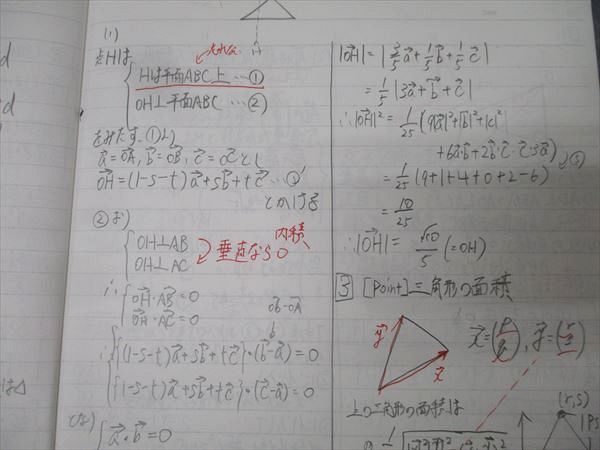 (1)
点Hは
Hは平面ABC上 … ①
OH⊥平面ABC … ②
をみたす. ①より
a→=OA→, b→=OB→, c→=OC→とし
OH→=(1-s-t)a→+sb→+tc→ … ①'
とかける
②より
OH⊥AB
OH⊥AC
垂直なら
内積
0
∴ OH→・AB→=0
OH→・AC→=0
OB→-OA→
∴ {(1-s-t)a→+sb→+tc→}・(b→-a→)=0
{(1-s-t)a→+sb→+tc→}・(c→-a→)=0
a→・b→=0
|OH→|=|3/5 a→+1/5 b→+1/5 c→|
=1/5|3a→+b→+c→|
∴|OH→|²=1/25(9|a→|²+|b→|²+|c→|²
+6a→・b→+2b→・c→
=1/25(9+1+4+0+2-6)
=10/25
∴|OH→|=√10/5(=OH)
3 [Point]三角形の面積
y→
x→
x→=(p q), y→=(r s)
上の三角形の面積は
(r,s)